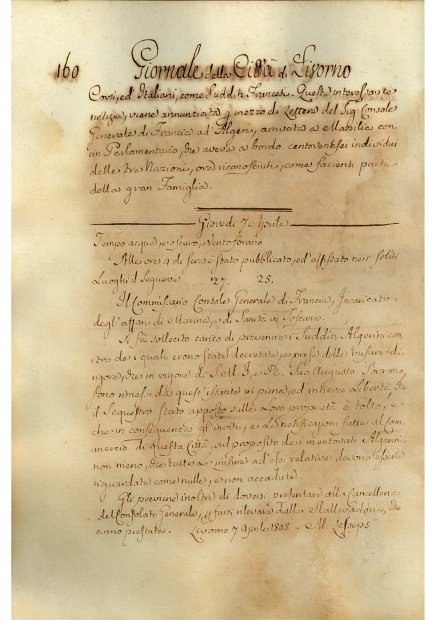 160 Giornale della Città di Livorno
Corsi, ed Italiani, come Sudditi Francesi. Questa interessante
notizia, viene annunciata p mezzo di Lettera del Sig. Console
Generale di Francia ad Algeri, arrivata a Marsilia con
un Parlamentario, che aveva a bordo centoventisei individui
delle tre Nazioni, ora riconosciuti, come facienti parte
della gran Famiglia.
Giovedi 7 Aprile
Tempo acqua, e oscuro, vento forano
Alle ore 4 di sera è stato pubblicato, ed affissato nei soliti
Luoghi il seguente 27. 25.
Il Commissario Console Generale di Francia, Incaricato
degl'affari di Marina, e di Sanità in Toscana.
Si fa sollecito carico di prevenire i Sudditi Algerini con,,
tro de i quali erono state decretate, e prese delle misure di
rigore, che in vigore di Suo Augusto Sovrano,
sono rimessi da quest'istante in piena, ed intiera Libertà, che
il Sequestro stato apposto sulle Loro proprietà è tolto, e
che in conseguenza gl'inviti, e Le notificazioni fatte al Com,,
mercio di questa Città, sul proposito dei mentovati Algerini
non meno, che tutte Le misure ad essi relative devono essere
riguardate come nulle, e non accadute.
Gli previene inoltre di doversi presentare alla Cancelleria
del Consolato Generale, p farsi rilevare dalla Mallevadoria, che
anno prestata. Livorno 7 Aprile 1808. M. Lesseps